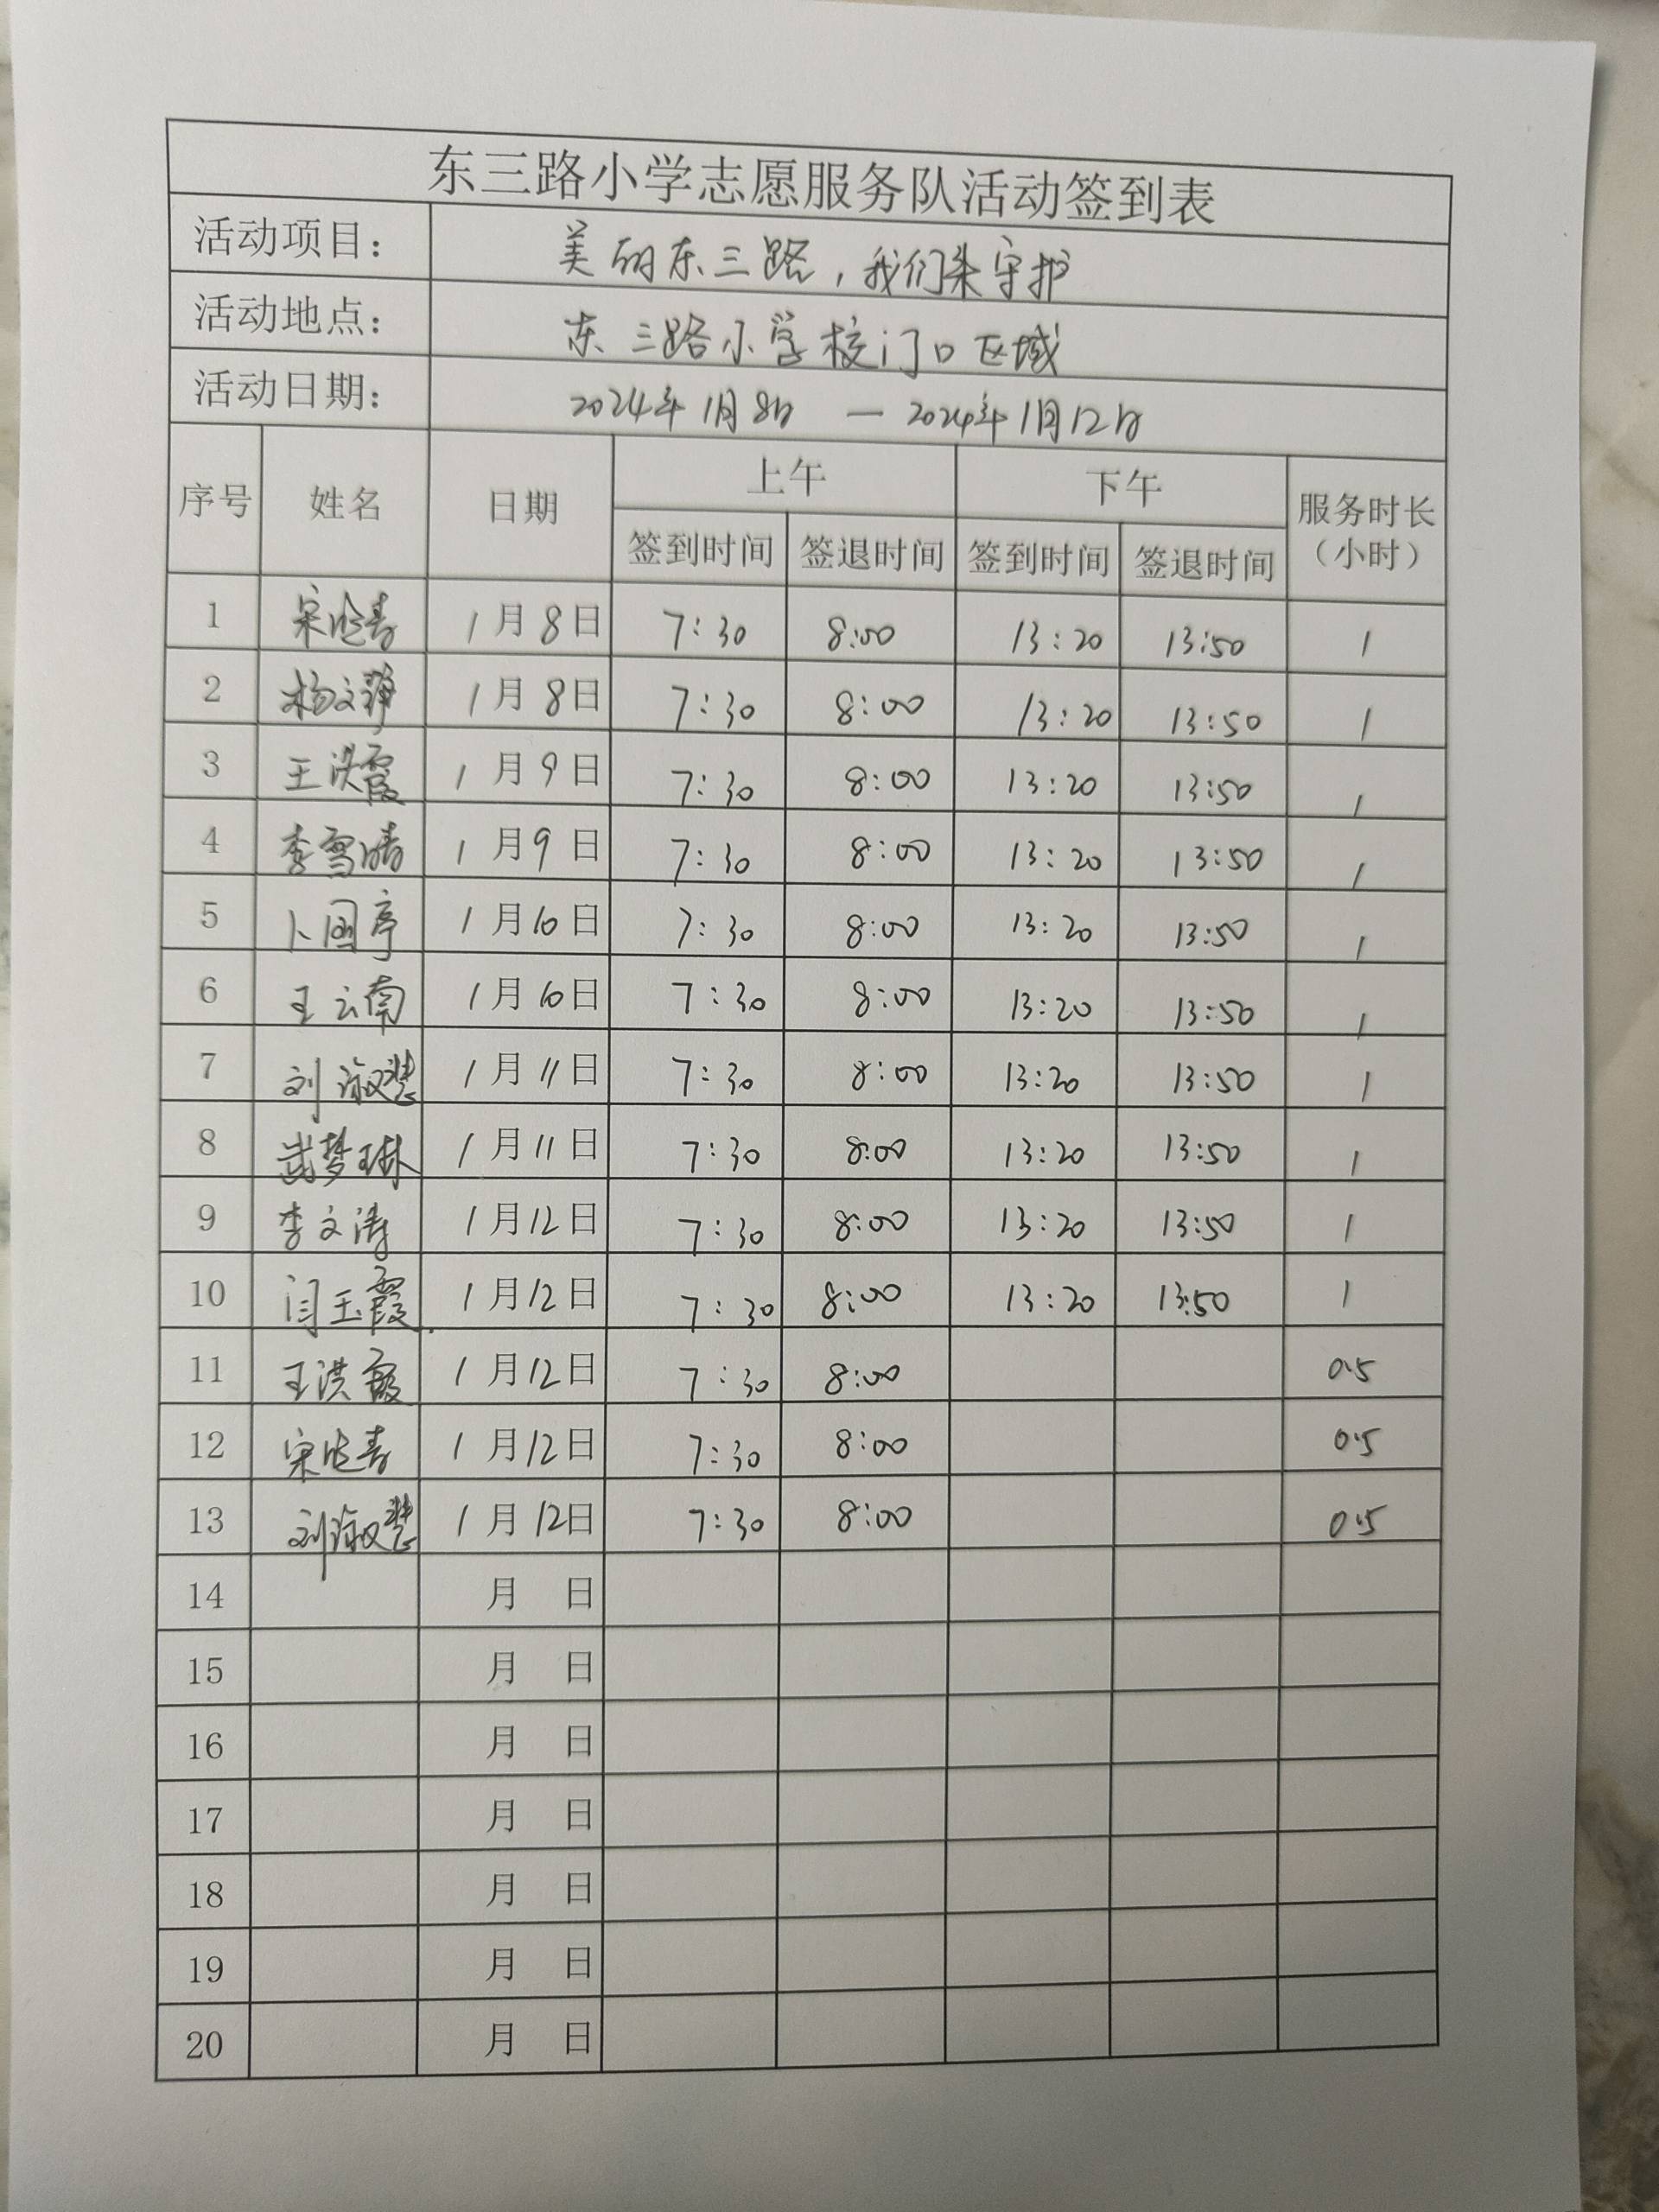 东三路小学志愿服务队活动签到表
活动项目： 美丽东三路，我们来守护
活动地点： 东三路小学校门口区域
活动日期： 2024年1月8日 — 2024年1月12日
序号 姓名 日期 上午 下午 服务时长（小时）
签到时间 签退时间 签到时间 签退时间
1 宋 1月8日 7:30 8:00 13:20 13:50 1
2 杨文静 1月8日 7:30 8:00 13:20 13:50 1
3 王洪霞 1月9日 7:30 8:00 13:20 13:50 1
4 李雪晴 1月9日 7:30 8:00 13:20 13:50 1
5 卜国亭 1月10日 7:30 8:00 13:20 13:50 1
6 王云南 1月10日 7:30 8:00 13:20 13:50 1
7 刘淑慧 1月11日 7:30 8:00 13:20 13:50 1
8 武梦琳 1月11日 7:30 8:00 13:20 13:50 1
9 李文涛 1月12日 7:30 8:00 13:20 13:50 1
10 闫玉霞 1月12日 7:30 8:00 13:20 13:50 1
11 王洪霞 1月12日 7:30 8:00 0.5
12 宋 1月12日 7:30 8:00 0.5
13 刘淑慧 1月12日 7:30 8:00 0.5
14 月 日
15 月 日
16 月 日
17 月 日
18 月 日
19 月 日
20 月 日